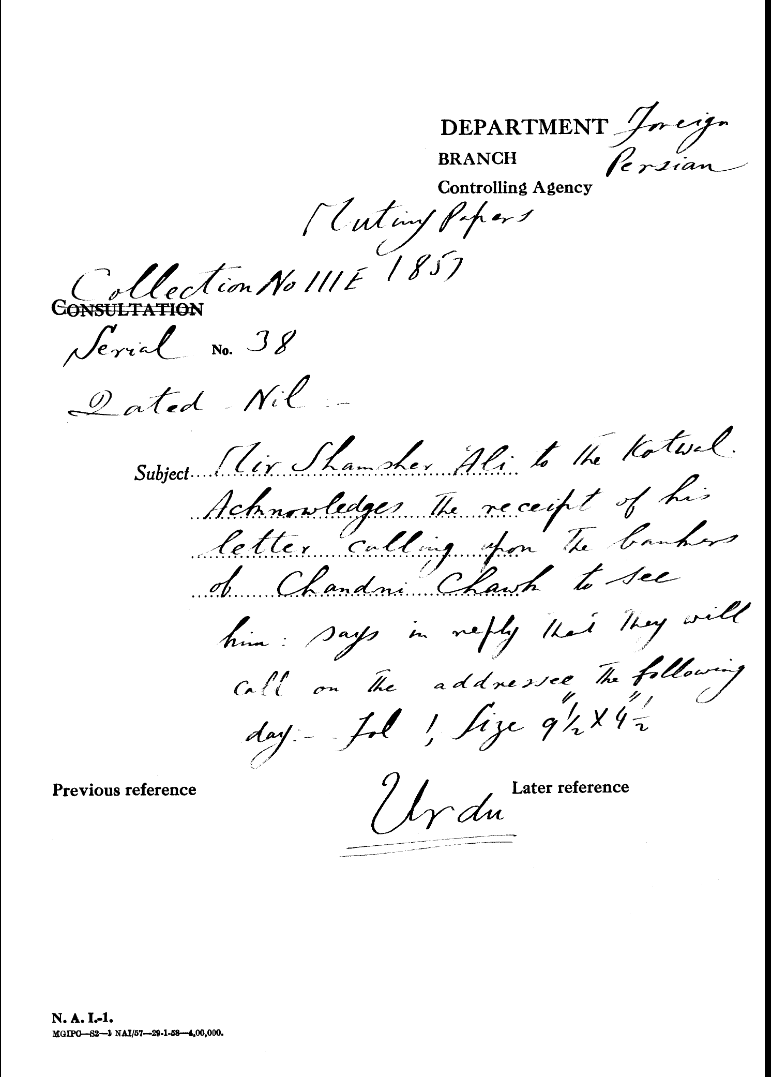 DEPARTMENT Foreign
BRANCH Persian
Controlling Agency
Mutiny Papers
Collection No III E 1857
CONSULTATION
Serial No. 38
Dated Nil –
Subject Mir Shamsher Ali to the Kotwal.
Acknowledges the receipt of his
letter calling upon the bankers
of Chandni Chawk to see
him: says in reply that they will
call on the addressee the following
day.– Fol 1, Size 9½" X 4½"
Previous reference
Later reference
Urdu
N. A. I.-1.
MGIPC—S2—3 NAI/57—29-1-58—4,00,000.